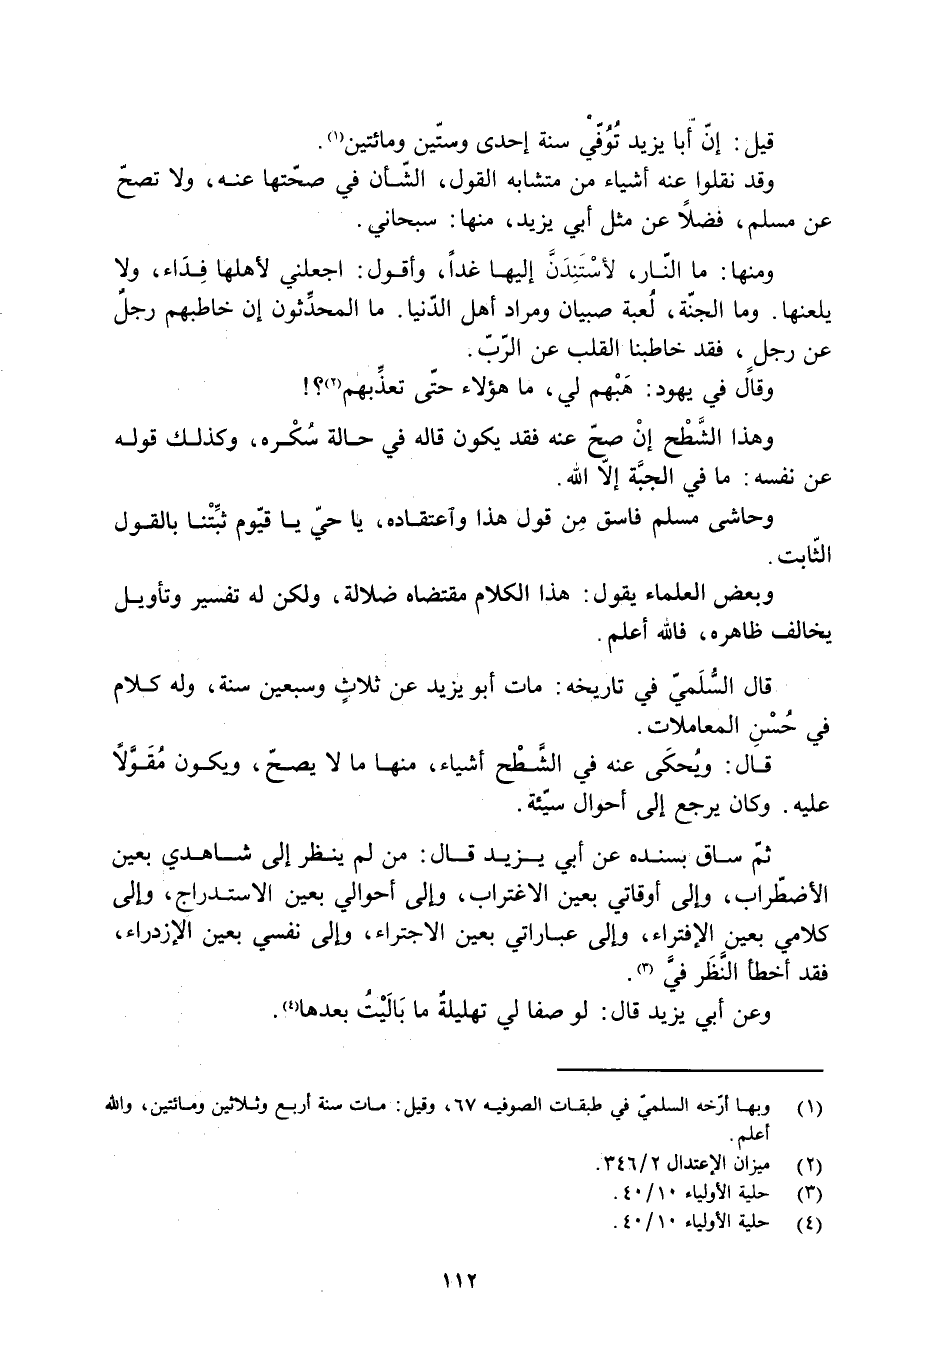 قيل: إنّ أبا يزيد تُوُفّي سنة إحدى وستّين ومائتين(١).
وقد نقلوا عنه أشياء من متشابه القول، الشّأن في صحّتها عنه، ولا تصحّ
عن مسلم، فضلًا عن مثل أبي يزيد، منها: سبحاني.
ومنها: ما النّار، لأسْتَنِدَنَّ إليها غداً، وأقول: اجعلني لأهلها فِدَاء، ولا
يلعنها. وما الجنّة، لُعبة صبيان ومراد أهل الدّنيا. ما المحدِّثون إن خاطبهم رجلٌ
عن رجلٍ، فقد خاطبنا القلب عن الرّبّ.
وقال في يهود: هَبْهم لي، ما هؤلاء حتّى تعذِّبهم(٢)؟!
وهذا الشَّطْح إنْ صحّ عنه فقد يكون قاله في حالة سُكْره، وكذلك قوله
عن نفسه: ما في الجبَّة إلّا الله.
وحاشى مسلم فاسق مِن قول هذا وآعتقاده، يا حيّ يا قيّوم ثبِّتْنا بالقول
الثّابت.
وبعض العلماء يقول: هذا الكلام مقتضاه ضلالة، ولكن له تفسير وتأويل
يخالف ظاهره، فالله أعلم.
قال السُّلَميّ في تاريخه: مات أبو يزيد عن ثلاثٍ وسبعين سنة، وله كلام
في حُسْنِ المعاملات.
قال: ويُحكَى عنه في الشَّطْح أشياء، منها ما لا يصحّ، ويكون مُقَوَّلًا
عليه. وكان يرجع إلى أحوال سيّئة.
ثمّ ساق بسنده عن أبي يزيد قال: من لم ينظر إلى شاهدي بعين
الأضطّراب، وإلى أوقاتي بعين الاغتراب، وإلى أحوالي بعين الاستدراج، وإلى
كلامي بعين الإفتراء، وإلى عباراتي بعين الاجتراء، وإلى نفسي بعين الإزدراء،
فقد أخطأ النَّظَر فيَّ (٣).
وعن أبي يزيد قال: لو صفا لي تهليلةٌ ما بَالَيْتُ بعدها(٤).
(١) وبها أرّخه السلميّ في طبقات الصوفيه ٦٧، وقيل: مات سنة أربع وثلاثين ومائتين، والله
أعلم.
(٢) ميزان الإعتدال ٣٤٦/٢.
(٣) حلية الأولياء ٤٠/١٠.
(٤) حلية الأولياء ٤٠/١٠.
١١٢